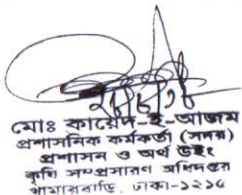 মোঃ কায়েদ-ই-আজম
প্রশাসনিক কর্মকর্তা (সদর)
প্রশাসন ও অর্থ উইং
কৃষি সম্প্রসারণ অধিদপ্তর
খামারবাড়ি, ঢাকা-১২১৫